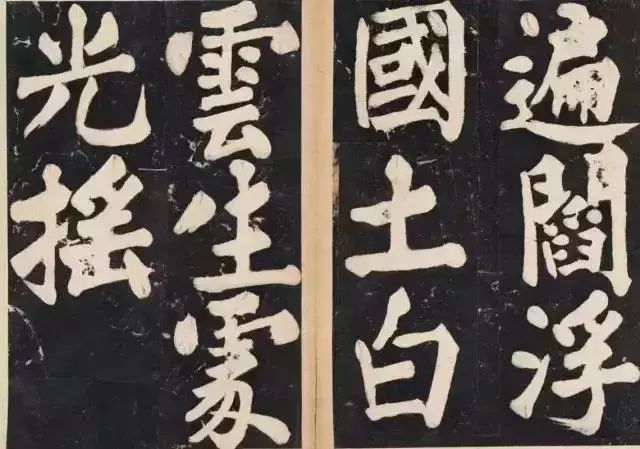 遍閻浮
國土白
雲生處
光搖